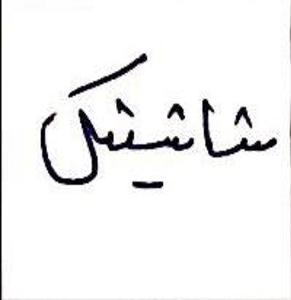 شاشيشك